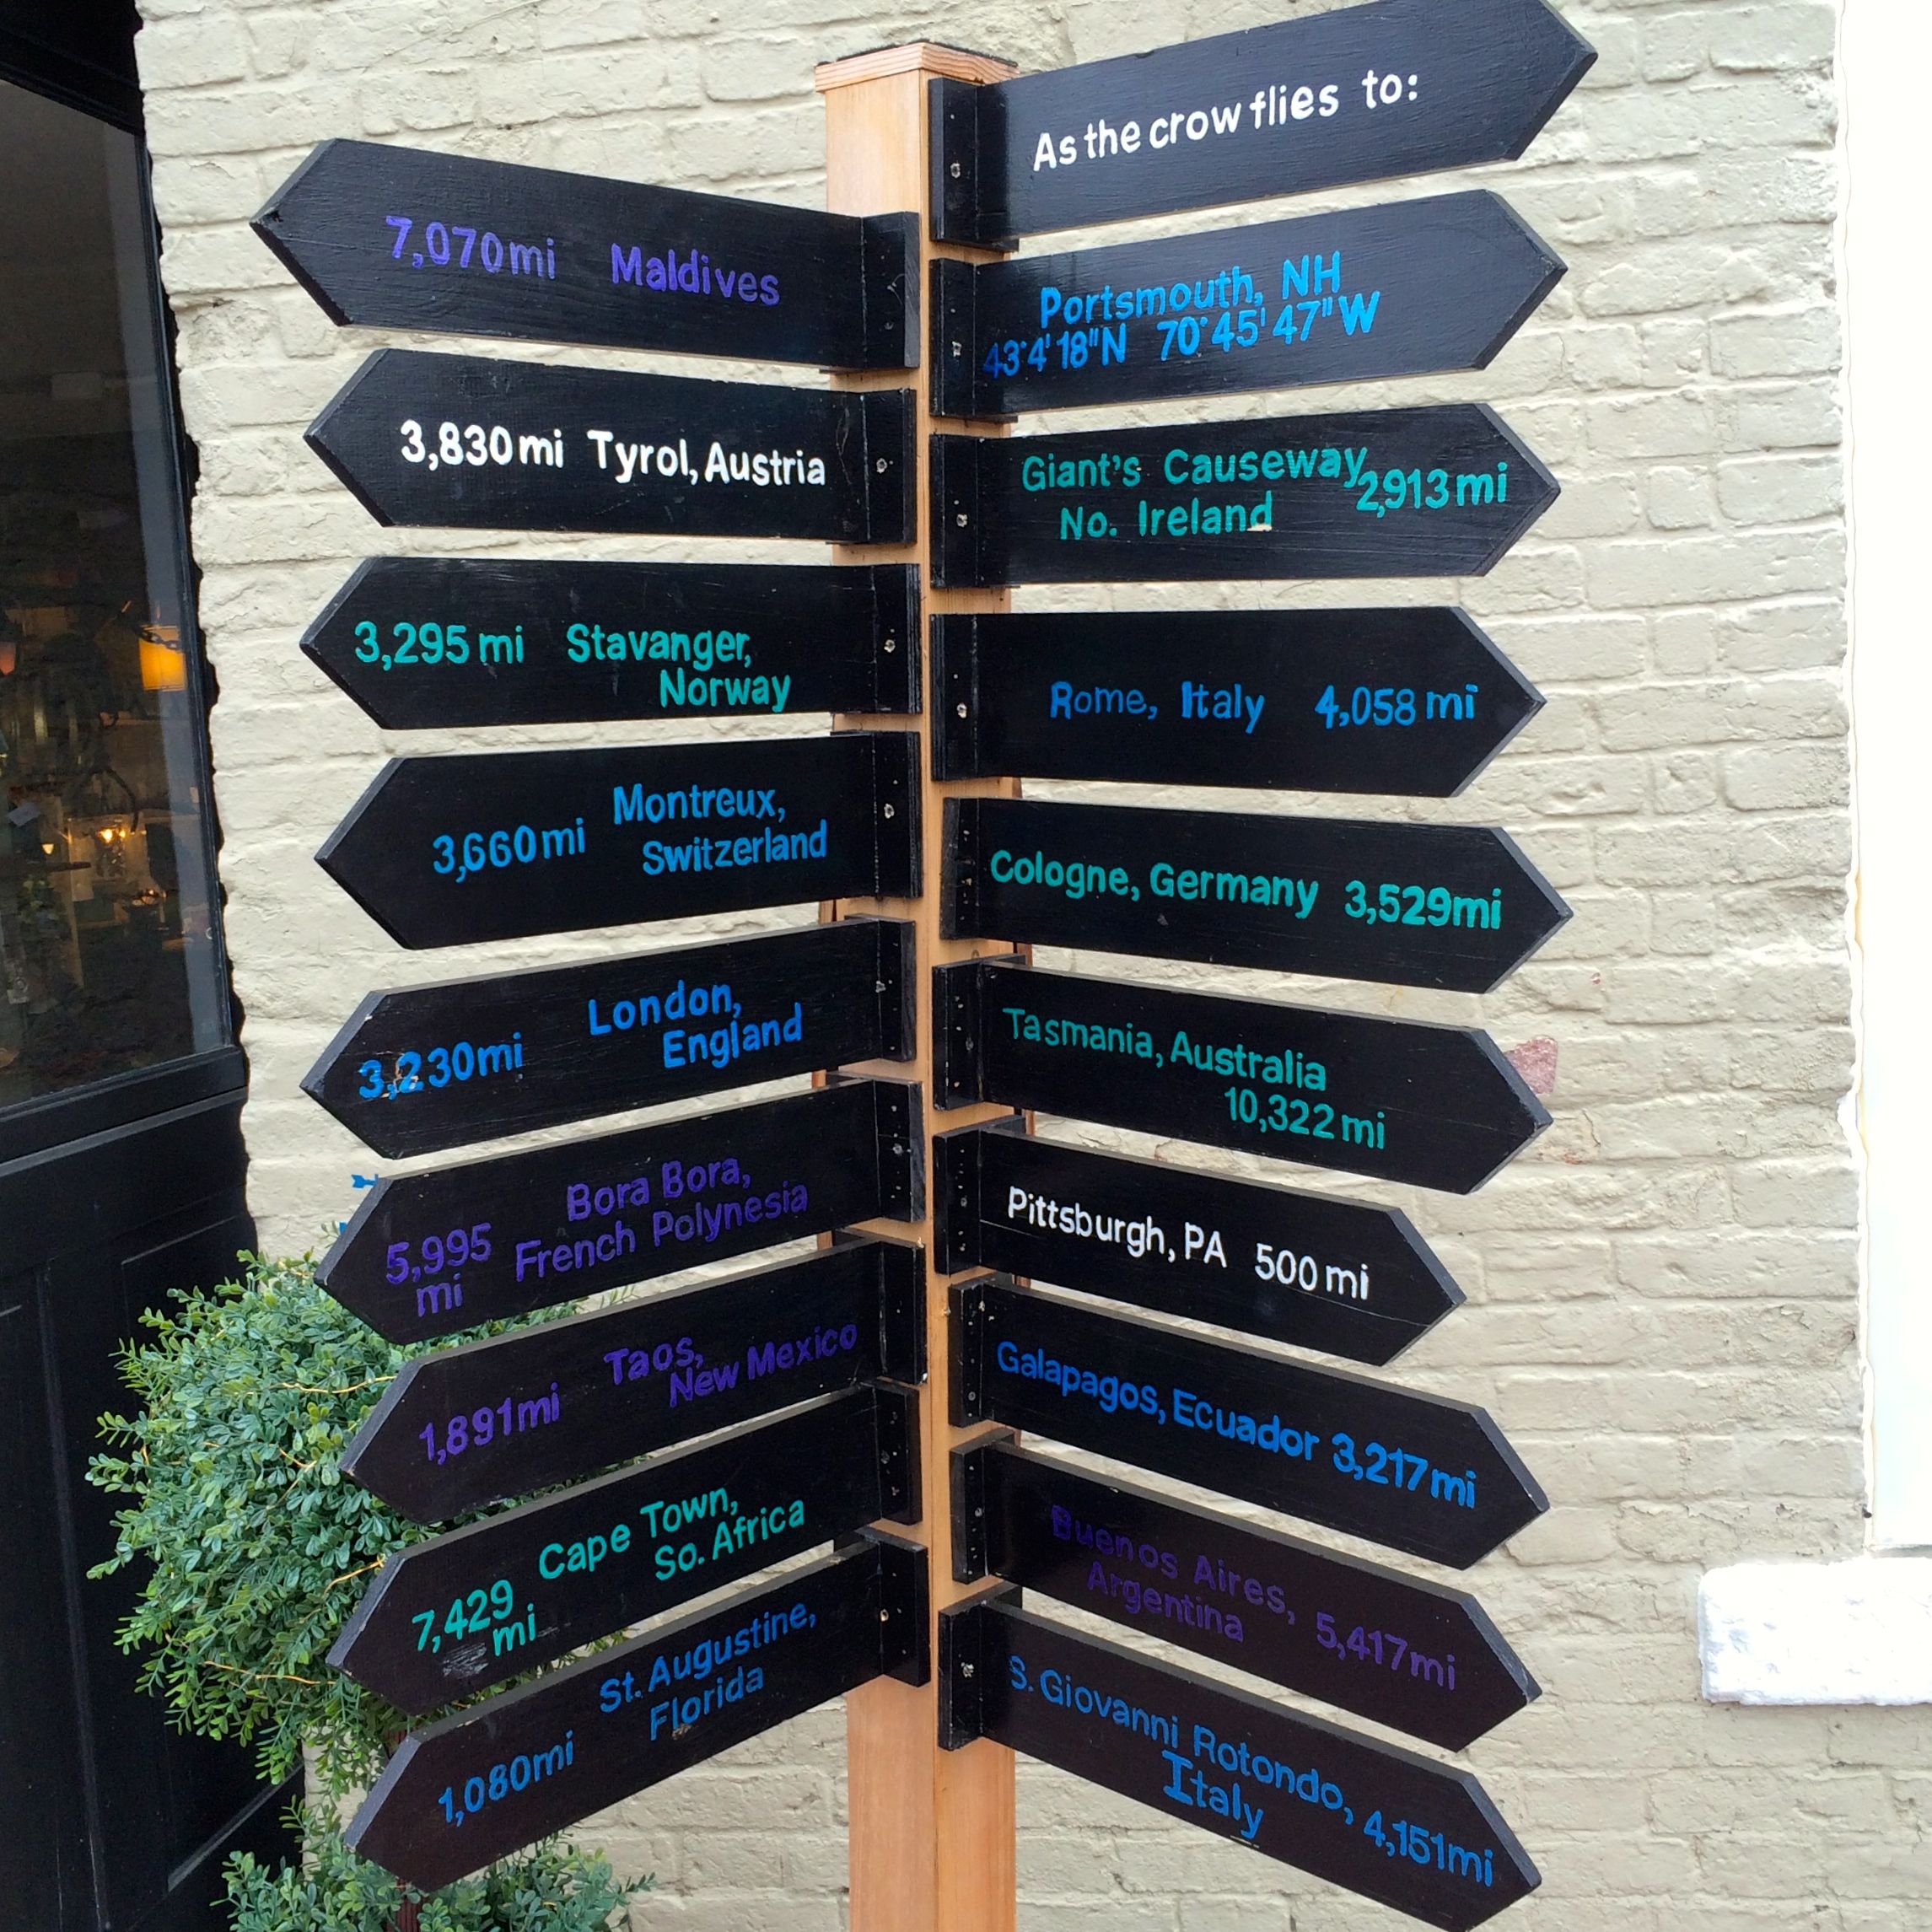 As the crow flies to:
7,070mi Maldives
Portsmouth, NH
43°4'18"N 70°45'47"W
3,830mi Tyrol, Austria
Giant's Causeway,
No. Ireland
2,913mi
3,295mi Stavanger,
Norway
Rome, Italy 4,058mi
3,660mi Montreux,
Switzerland
Cologne, Germany 3,529mi
3,230mi London,
England
Tasmania, Australia
10,322mi
Bora Bora,
French Polynesia
5,995
mi
Pittsburgh, PA 500mi
1,891mi Taos,
New Mexico
Galapagos, Ecuador 3,217mi
Cape Town,
So. Africa
7,429
mi
Buenos Aires,
Argentina
5,417mi
1,080mi St. Augustine,
Florida
S. Giovanni Rotondo,
Italy
4,151mi